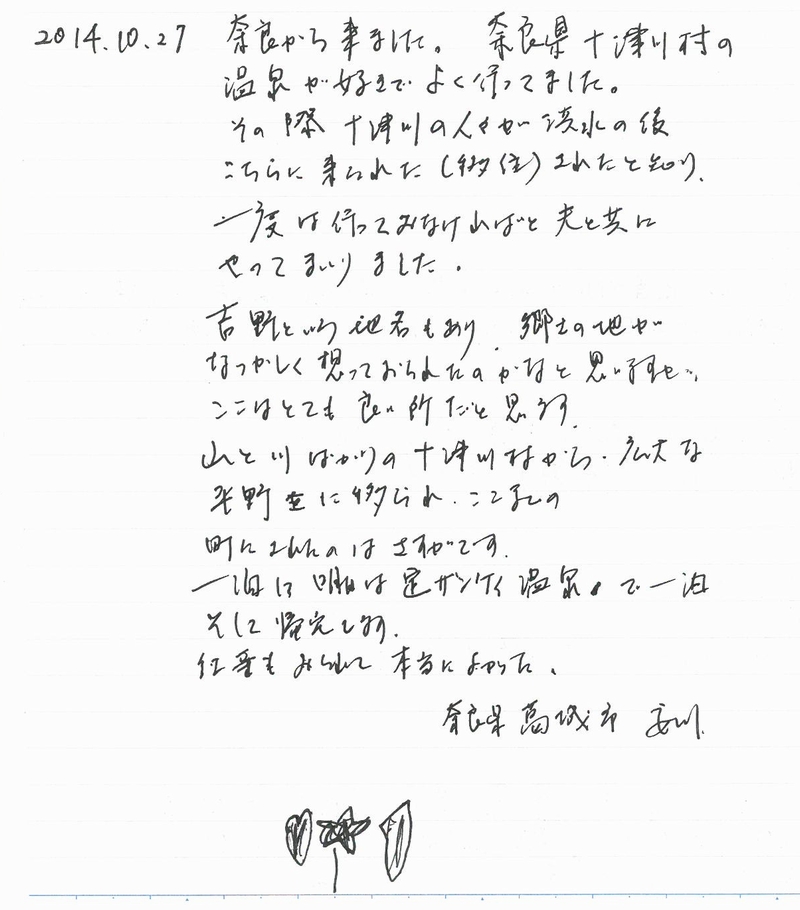 2014.10.27 奈良から来ました。 奈良県十津川村の
温泉が好きでよく行ってました。
その際 十津川の人々が洪水の後
こちらに来られた(移住)されたと知り、
一度は行ってみなければと夫と共に
やってまいりました。
吉野という地名もあり、郷土の地が
なつかしく想っておられたのかなと思いますが、
ここはとても良い所だと思います。
山と川ばかりの十津川村から、広大な
平野 に移られ、ここまでの
町にされたのはさすがです。
一泊し 明日は定ザンケイ温泉で一泊
そして帰宅します。
紅葉もみられて本当によかった。
奈良県葛城市